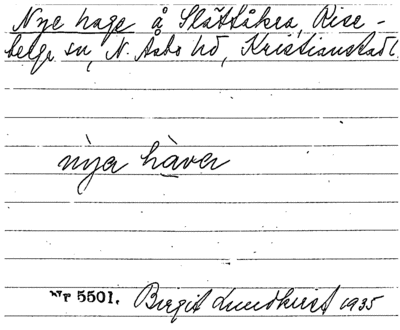 Nye hage å Slättåkra, Rise-
berga sn, N. Åsbo hd, Kristianstad l
nya hàva
Nr 5501. Birgit Lundkvist 1935